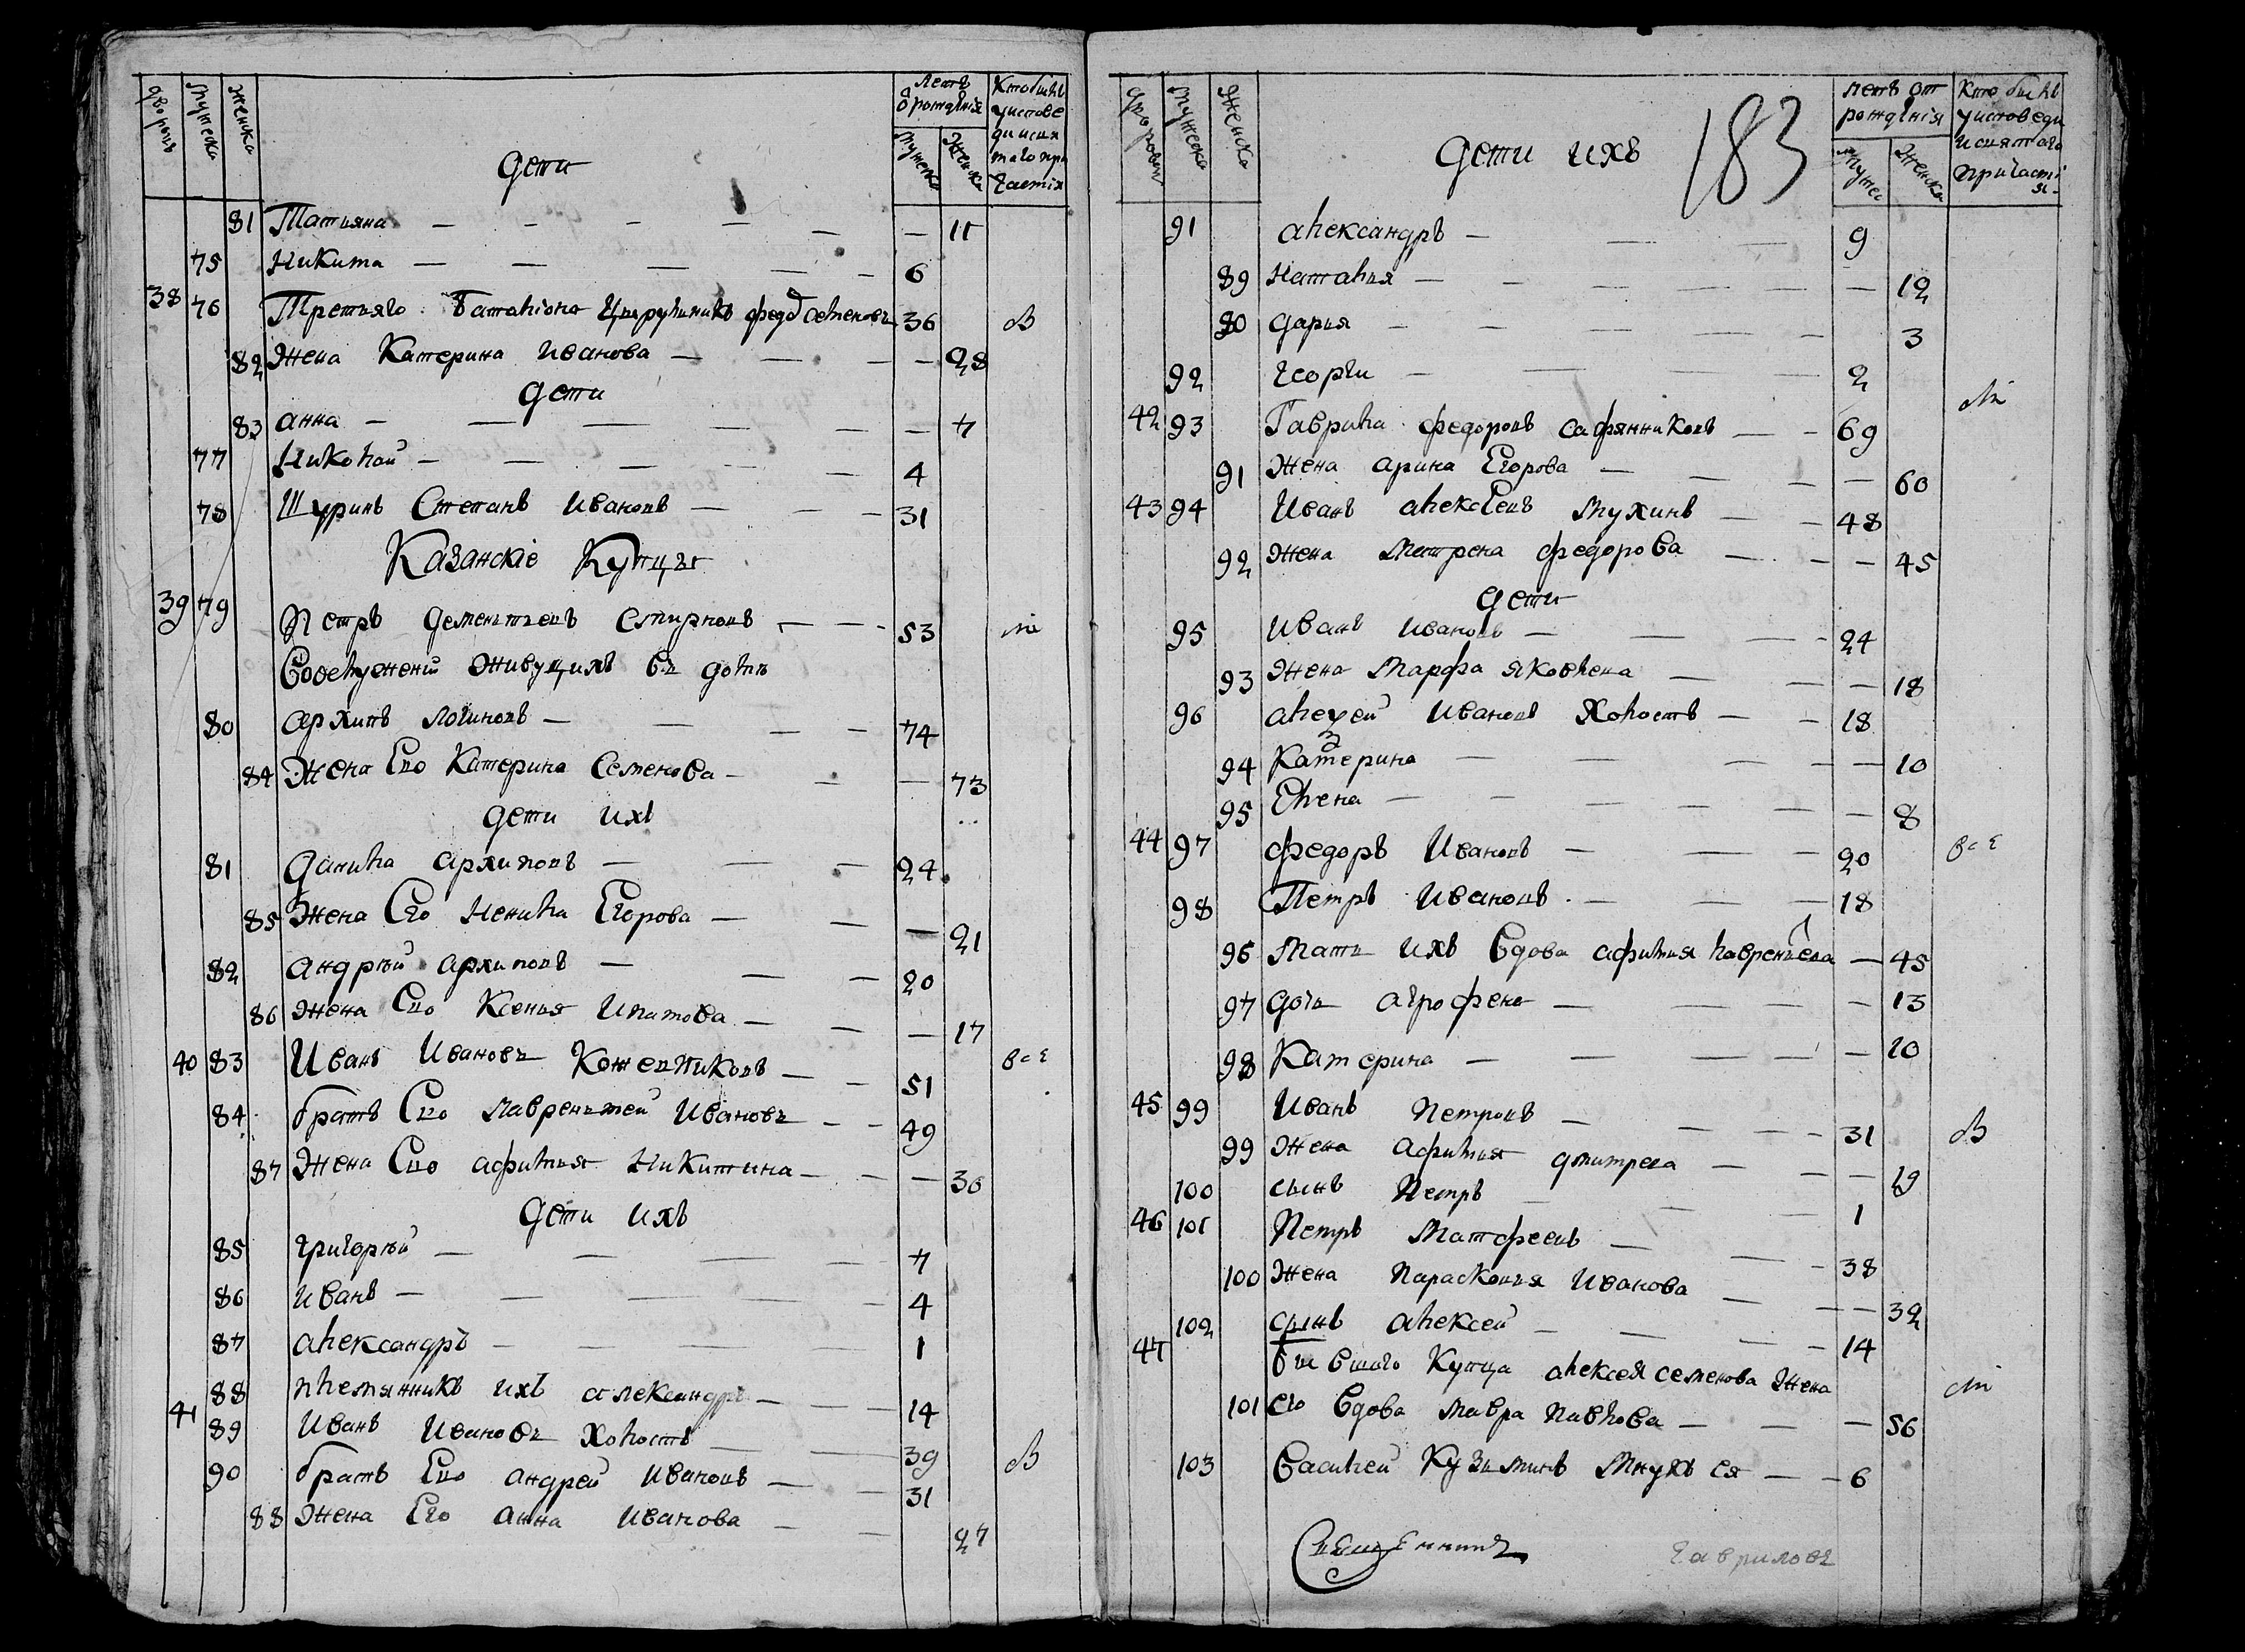 дворовъ мужеска женска дети летъ от рождения мужеска женска Кто былъ у исповеди и святаго причастия
81 Татияна — — — — — 11
75 Никита — — — — 6
38 76 Третияго Баталиона Цырулникъ 36 в
82 Жена Катерина Иванова — — — 28
дети
83 анна — — — — — 7
77 Николай — — — — — 4
78 Шуринъ Степанъ Ивановъ — — — 31
Казанскiе Купцы
39 79 Петръ Дементиевъ Смирновъ — — — 53
живущихъ въ доме
80 архипъ логиновъ — — — — 74
84 Жена Ево Катерина Семенова — — — 73
дети ихъ
81 Данила архиповъ — — — 24
85 Жена Его Ненила Егорова — — — 21
82 андрей архиповъ — — — 20
86 Жена Ево Ксения Ипатова — — — 17
40 83 Иванъ Ивановъ Кожевниковъ — — 51 все
84 братъ Ево лаврентей Ивановъ — — 49
87 Жена Ево афимия Никитина — — — 36
Дети ихъ
85 григорей — — — — 7
86 иванъ — — — — 4
87 александръ — — — — 1
88 племянникъ ихъ александръ — — — 14
41 89 Иванъ Ивановъ холостъ — — 39 в
90 братъ Ево андрей Ивановъ — — 31
88 Жена Его анна Иванова — — 27
дворовъ мужеска женска дети ихъ 183 летъ от рождения мужес женска Кто былъ у исповеди и святаго причастия
91 александръ — — — 9
89 Наталия — — — — — — 12
90 дария — — — — — 3
92 георги — — — 2
42 93 Гаврила федоровъ сафянниковъ — — 69
91 Жена арина Егорова — — — — 60
43 94 Иванъ алексеевъ Мухинъ — — 48
92 Жена Матрена федорова — — — 45
дети
95 Иванъ Ивановъ — — — 24
93 Жена Марфа яковлева — — — 18
96 Ивановъ холостъ — — 18
94 Катерина — — — — 10
95 Елена — — — — — — 8
44 97 федоръ Ивановъ — — — 20 все
98 Петръ Ивановъ — — — 18
96 Мать ихъ вдова афимия лаврентева — 45
97 дочь агрофена — — — — 13
98 Катерина — — — — — 10
45 99 Иванъ Петровъ — — — — 31 в
99 Жена афимия дмитрева — — — 19
100 сынъ Петръ — — — 1
46 101 Петръ Матфеевъ — — — 38
100 Жена Парасковия Иванова — — — 32
102 сынъ алексей — — — — 14
47 бывшаго Купца алексея семенова жена
101 его вдова мавра павлова — — — 56
103 василей Кузминъ внукъ ея — — 6
Священникъ гавриловъ